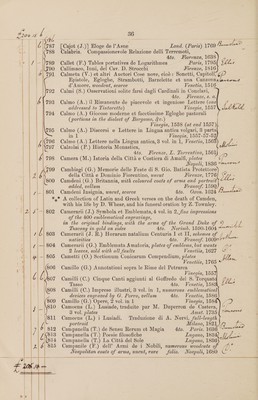 36
787 [Cajot (J.)] Eloge de l'Asne Lond. (Paris) 1769
788 Calabria. Compassionevole Relazione delli Terremoti,
4to. Florence, 1638
789 Callet (F.) Tables portatives de Logarithmes Paris, 1795
790 Callimaco, Inni, del Cav. D. Strocchi Firenze, 1816
791 Calmeta (V.) et altri Auctori Cose nove, cioè: Sonetti, Capitoli,
Epistole, Egloghe, Strambotti, Barzelette et una Canzona
d'Amore, woodcut, scarce Venetia, 1510
792 Calmi (S.) Osservationi solite farsi dagli Cardinali in Conclavi,
4to. Firenze, s. a
793 Calmo (A.) il Rimanente de piacevole et ingeniose Lettere (one
addressed to Tintoretto) Vinegia, 1557
794 Calmo (A.) Giocose moderne et facetissime Egloghe pastorali
(portions in the dialect of Bergamo, &c.)
Vinegia, 1558 (at end 1557)
795 Calmo (A.) Discorsi e Lettere in Lingua antica volgari, 3 parts
in 1 Vinegia, 1557-52-52
796 Calmo (A.) Lettere nella Lingua antica, 3 vol. in 1, Venetia, 1563
797 Calzolai (P.) Historia Monastica,
Firenze, L. Torrentino, 1561
798 Camera (M.) Istoria della Città e Costiera di Amalfi, plates
Napoli, 1836
799 Cambiagi (G.) Memorie delle Feste di S. Gio. Batista Protettore
della Città e Dominio Fiorentina, scarce Firenze, 1766
800 Camdeni (G.) Britannia, with coloured coats of arms and portrait
added, vellum Francof. 1590
801 Camdeni Insignia, uncut, scarce 4to. Oxon. 1624
*** A collection of Latin and Greek verses on the death of Camden,
with his life by D. Whear, and his funeral oration by Z. Townley.
802 Camerarii (J.) Symbola et Emblemata, 4 vol. in 2, fine impressions
of the 400 emblematical engravings,
in the original bindings, with the arms of the Grand Duke of
Tuscany in gold on side 4to. Norimb. 1595-1604
803 Camerarii (J. R.) Horarum natalium Centuria I et II, scheme of
nativities 4to. Francof. 1610
804 Camerarii (G.) Emblemata Amatoria, plates of emblems, but wants
2 leaves, sold with all faults Venetiis, 1627
805 Cametti (O.) Sectionum Conicarum Compendium, plates
Florentiæ, 1765
806 Camillo (G.) Annotationi sopra le Rime del Petrarca
Vinetia, 1557
807 Camilli (C.) Cinque Canti aggiunti al Goffredo del S. Torquato
Tasso 4to. Venetia, 1583
808 Camilli (C.) Imprese illustri, 3 vol. in 1, numerous emblematical
devices engraved by G. Porro, vellum 4to. Venetia, 1586
809 Camillo (G.) Opere, 2 vol. in 1 Vinegia, 1564
810 Camoens (L.) Lusiade, traduite par M. Duperron de Castera,
3 vol. plates Amst. 1735
811 Camoens (L.) i Lusiadi. Traduzione di A. Nervi, full-length
portrait Milano, 1821
812 Campanella (T.) de Sensu Rerum et Magia 4to. Paris, 1636
813 Campanella (T.) Poesie filosofiche Lugano, 1834
814 Campanella (T.) La Città del Sole Lugano, 1836
815 Campanile (F.) dell' Armi de i Nobili, numerous woodcuts of
Neapolitan coats of arms, uncut, rare folio. Napoli, 1680